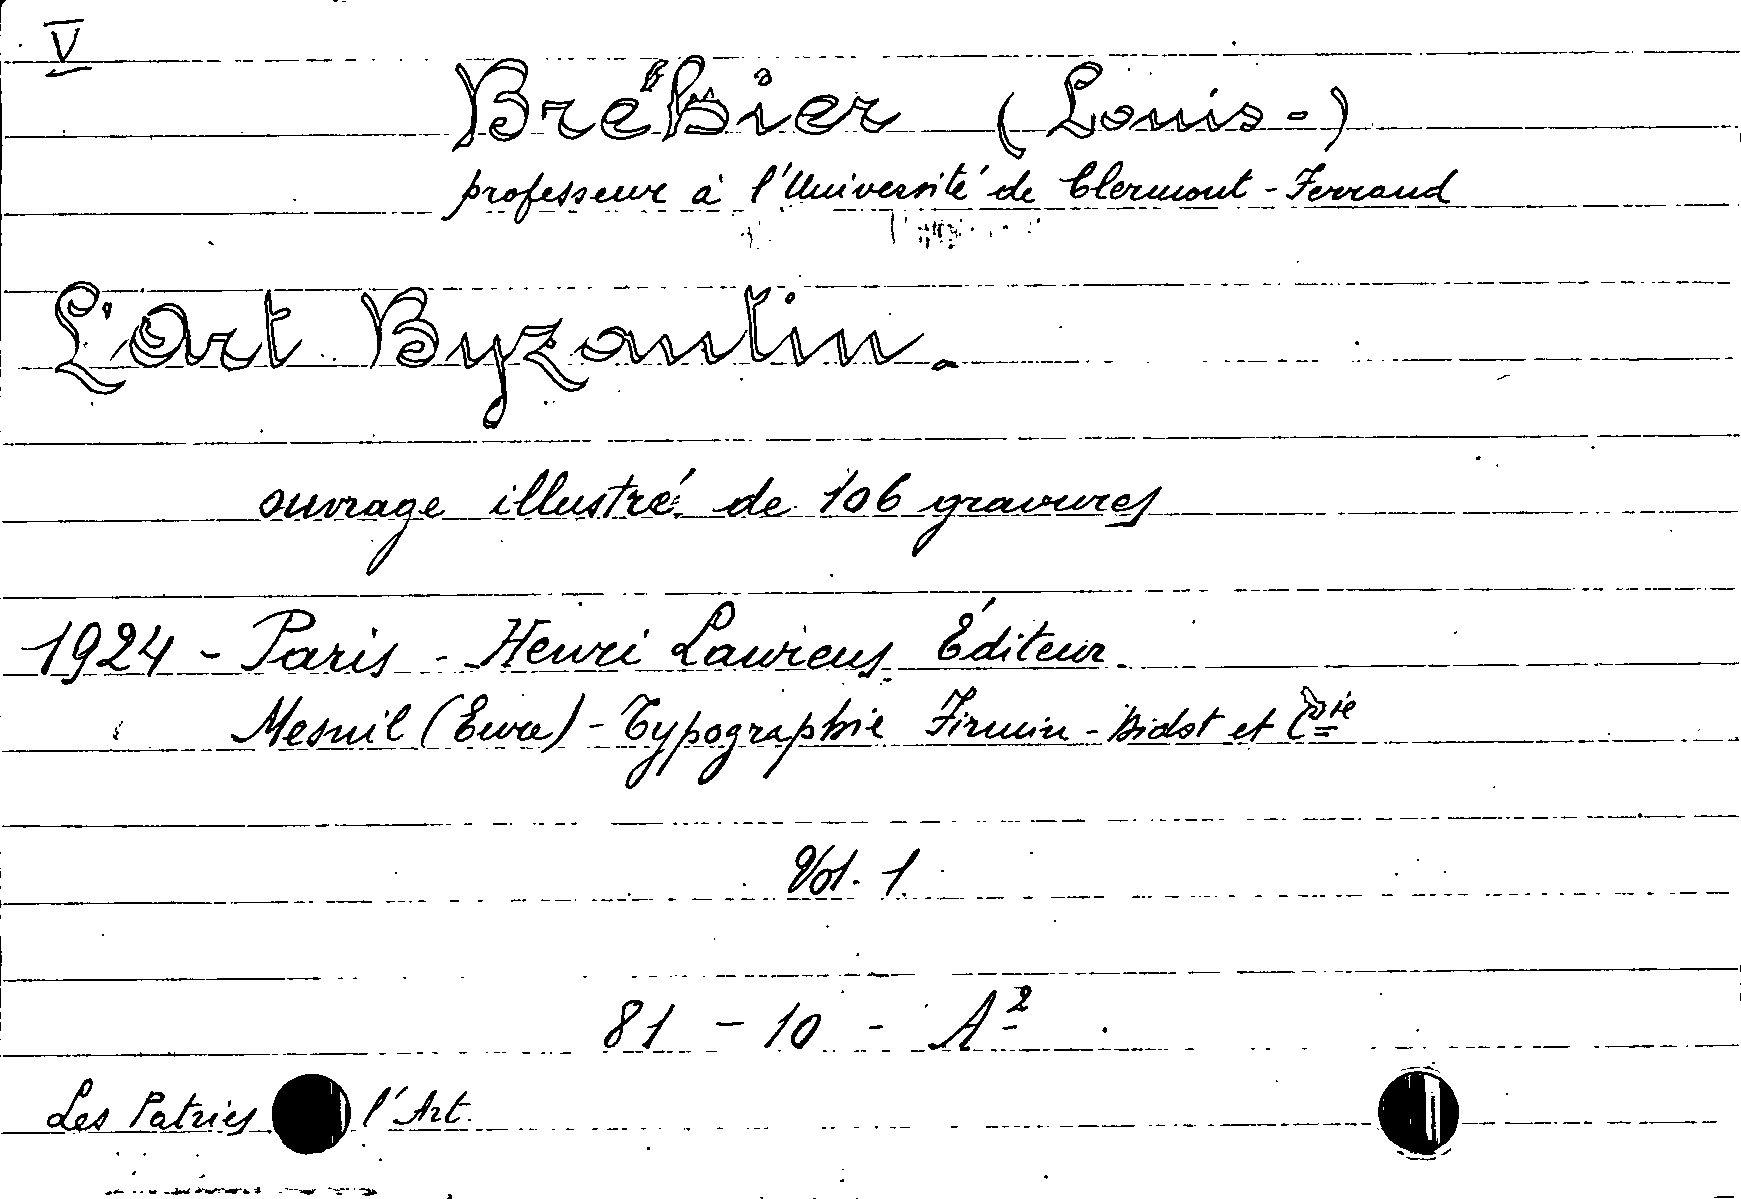 V
Bréhier (Louis-)
professeur à l'Université de Clermont-Ferrand
L'Art Byzantin.
ouvrage illustré de 106 gravures
1924 - Paris - Henri Laurens Éditeur.
Mesnil (Eure) - Typographie Firmin-Didot et Cie
Vol. 1
81 - 10 - A2
Les Patries l'Art.